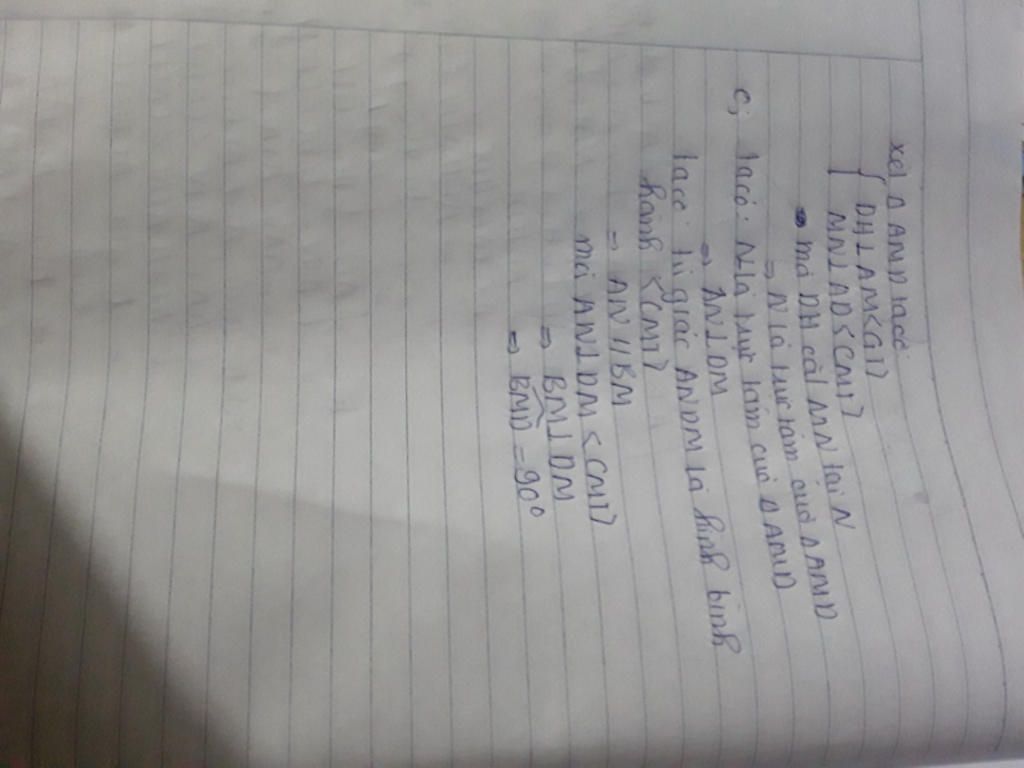 xét Δ AMD ta có:
{ DH⊥AM<GT>
MN⊥AD<CMT>
⇒ mà DH cắt MN tại N
⇒ N là trực tâm của Δ AMD
c, ta có: N là trực tâm của Δ AMD
⇒ AN⊥DM
ta có: tứ giác ANDM là hình bình
hành <CMT>
⇒ AN // BM
mà AN⊥DM <CMT>
⇒ BM⊥DM
⇒ BMD = 90°